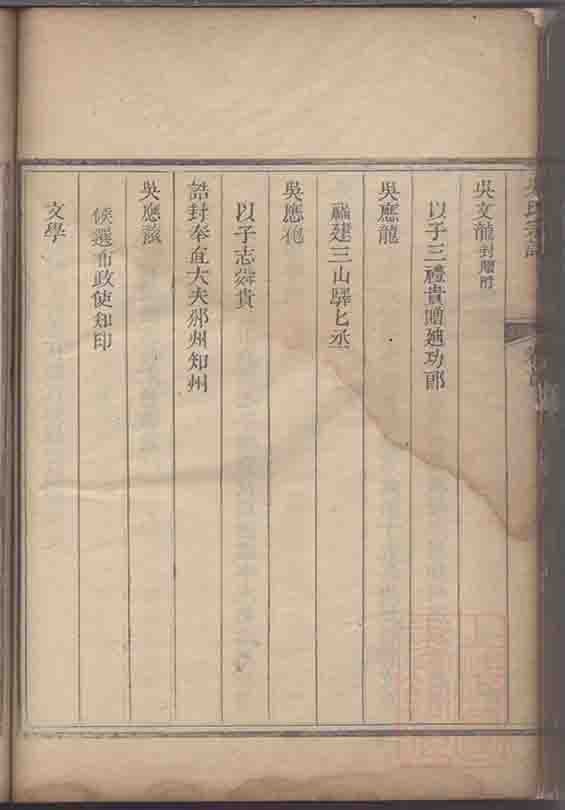 吳文龍封順府
以子三禮貴贈廸功郎
吳應龍
福建三山驛匕丞
吳應
以子志舜貴
誥封奉直大夫邠州知州
吳應
候選布政使知印
文學